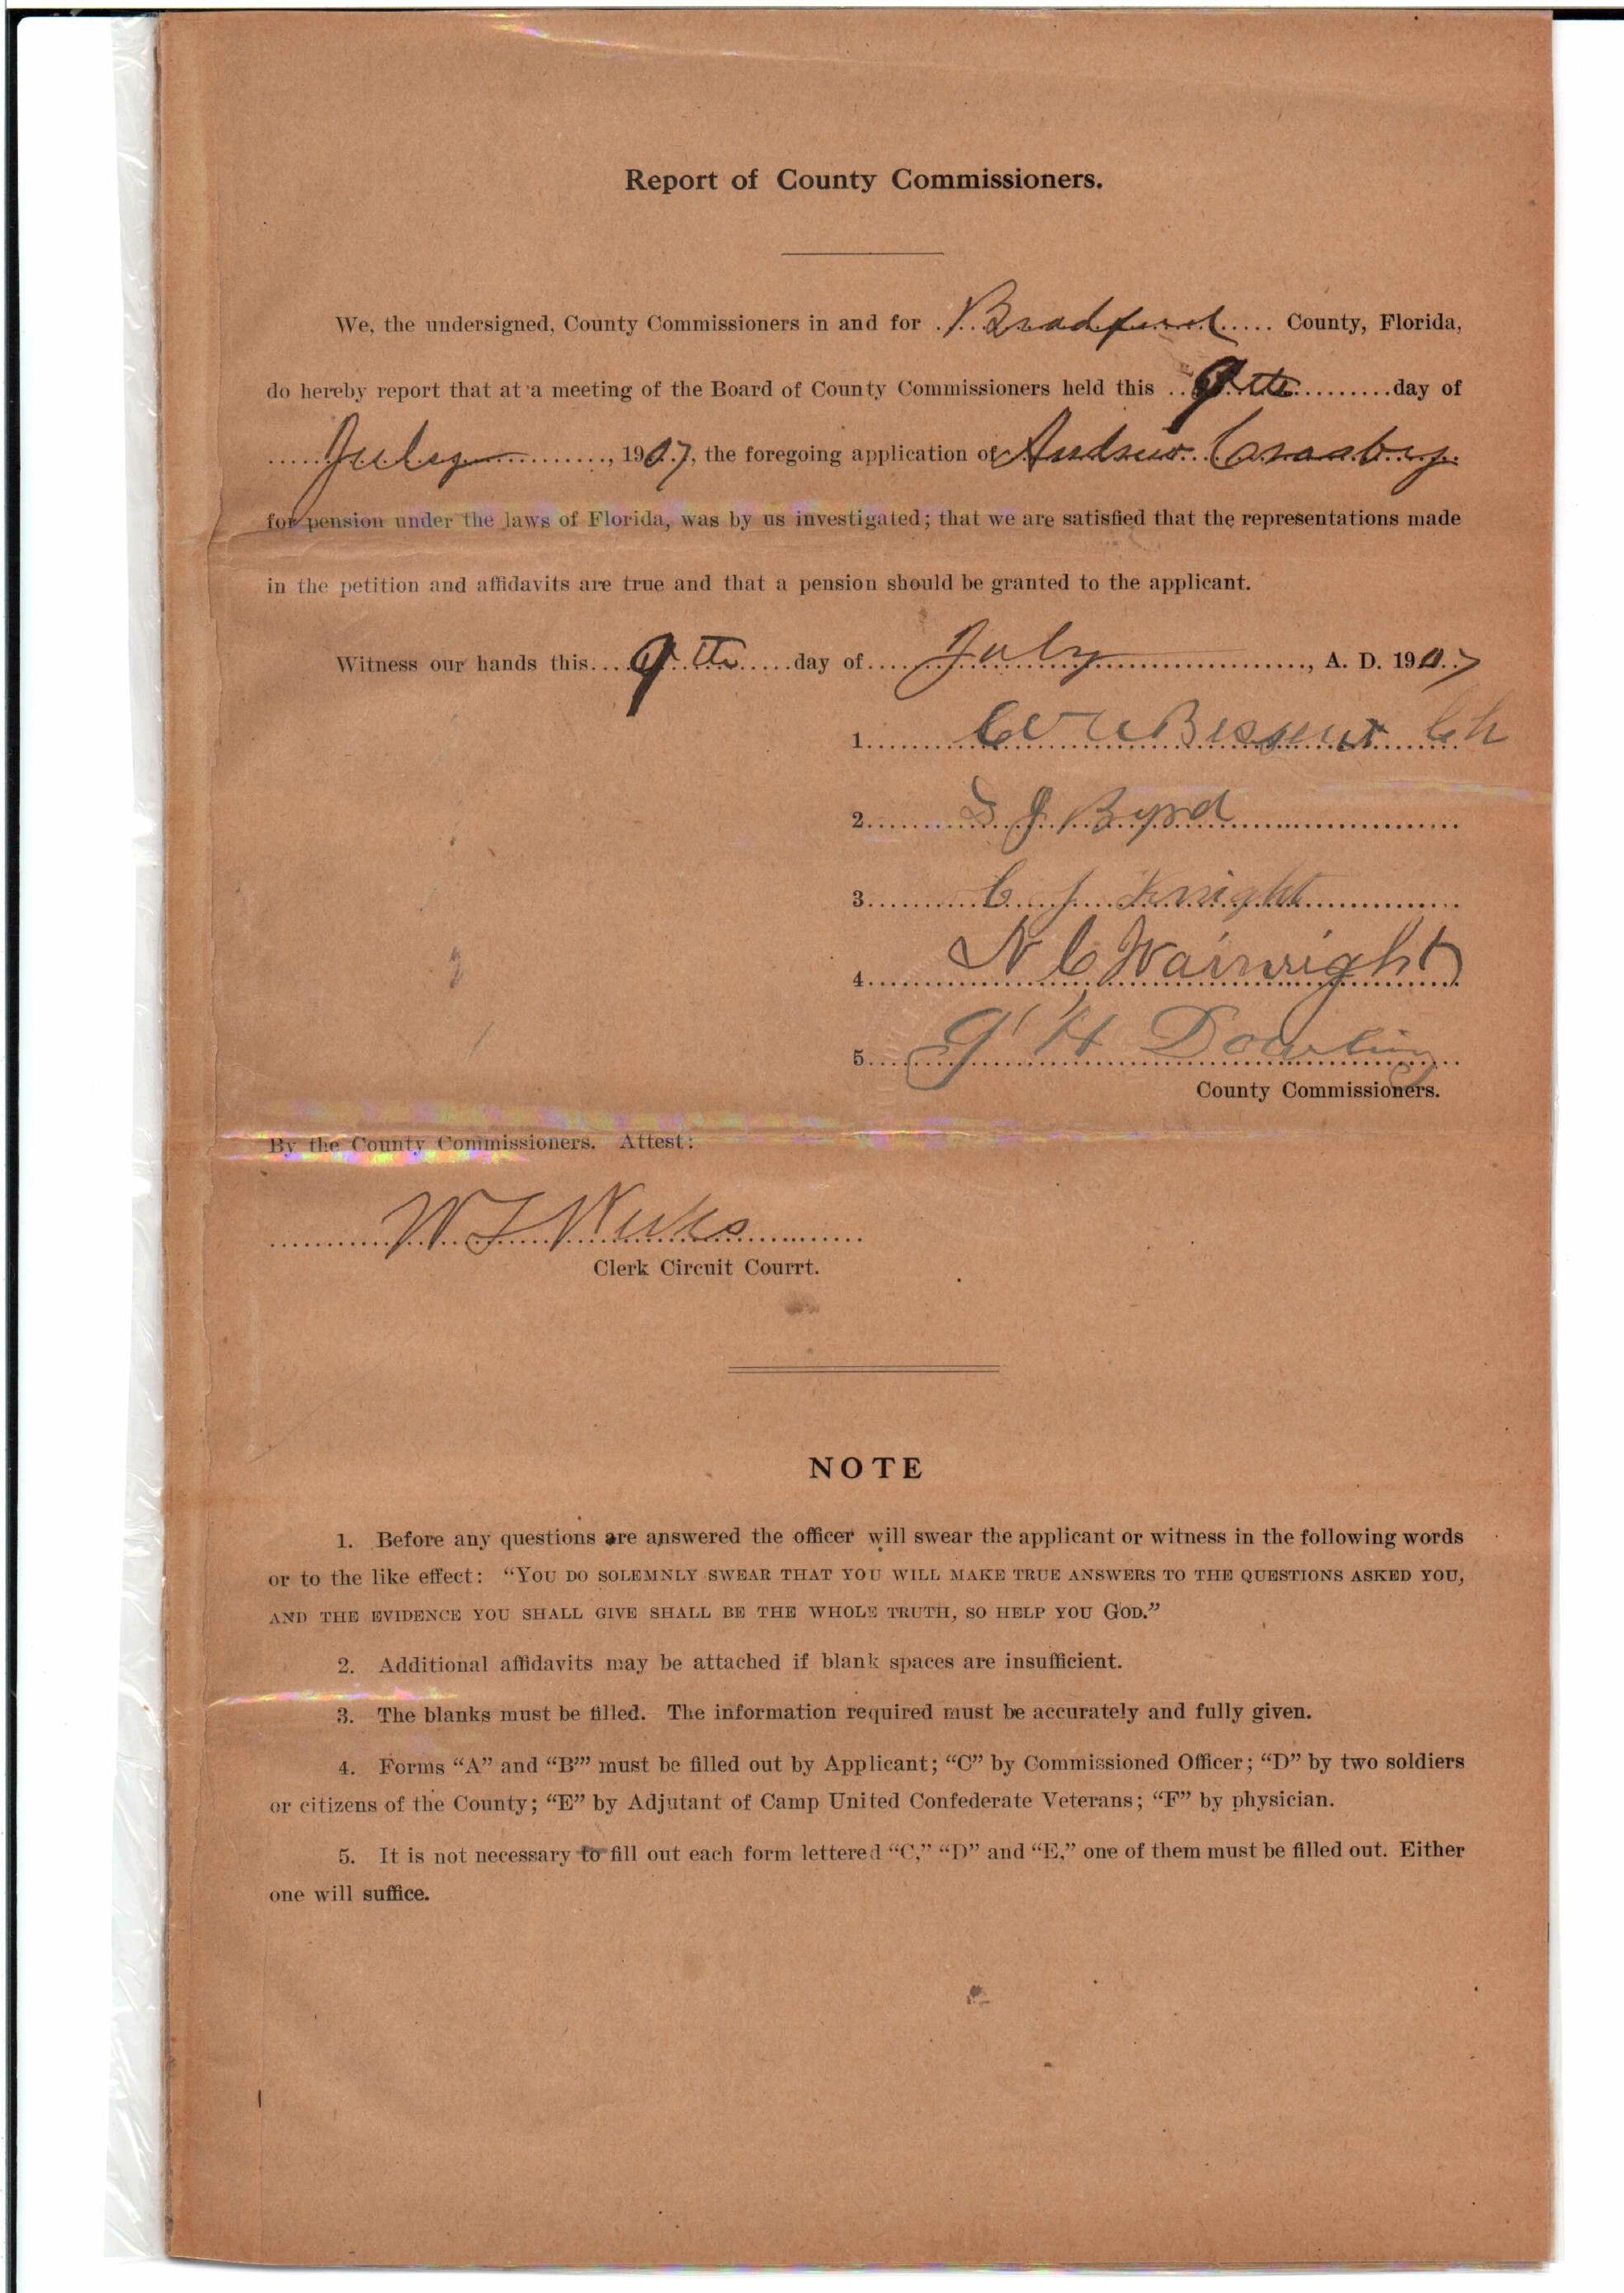 Report of County Commissioners.
We, the undersigned, County Commissioners in and for Bradford County, Florida,
do hereby report that at a meeting of the Board of County Commissioners held this 9th day of
July, 1907, the foregoing application of Andrew Crosby
for pension under the laws of Florida, was by us investigated; that we are satisfied that the representations made
in the petition and affidavits are true and that a pension should be granted to the applicant.
Witness our hands this 9th day of July, A. D. 1907
1. Ch
2. Byrd
3. C J Knight
4. N C Wainwright
5. H Dowling
County Commissioners.
By the County Commissioners. Attest:
W
Clerk Circuit Courrt.
NOTE
1. Before any questions are answered the officer will swear the applicant or witness in the following words
or to the like effect: “YOU DO SOLEMNLY SWEAR THAT YOU WILL MAKE TRUE ANSWERS TO THE QUESTIONS ASKED YOU,
AND THE EVIDENCE YOU SHALL GIVE SHALL BE THE WHOLE TRUTH, SO HELP YOU GOD.”
2. Additional affidavits may be attached if blank spaces are insufficient.
3. The blanks must be filled. The information required must be accurately and fully given.
4. Forms “A” and “B’” must be filled out by Applicant; “C” by Commissioned Officer; “D” by two soldiers
or citizens of the County; “E” by Adjutant of Camp United Confederate Veterans; “F” by physician.
5. It is not necessary to fill out each form lettered “C,” “D” and “E,” one of them must be filled out. Either
one will suffice.